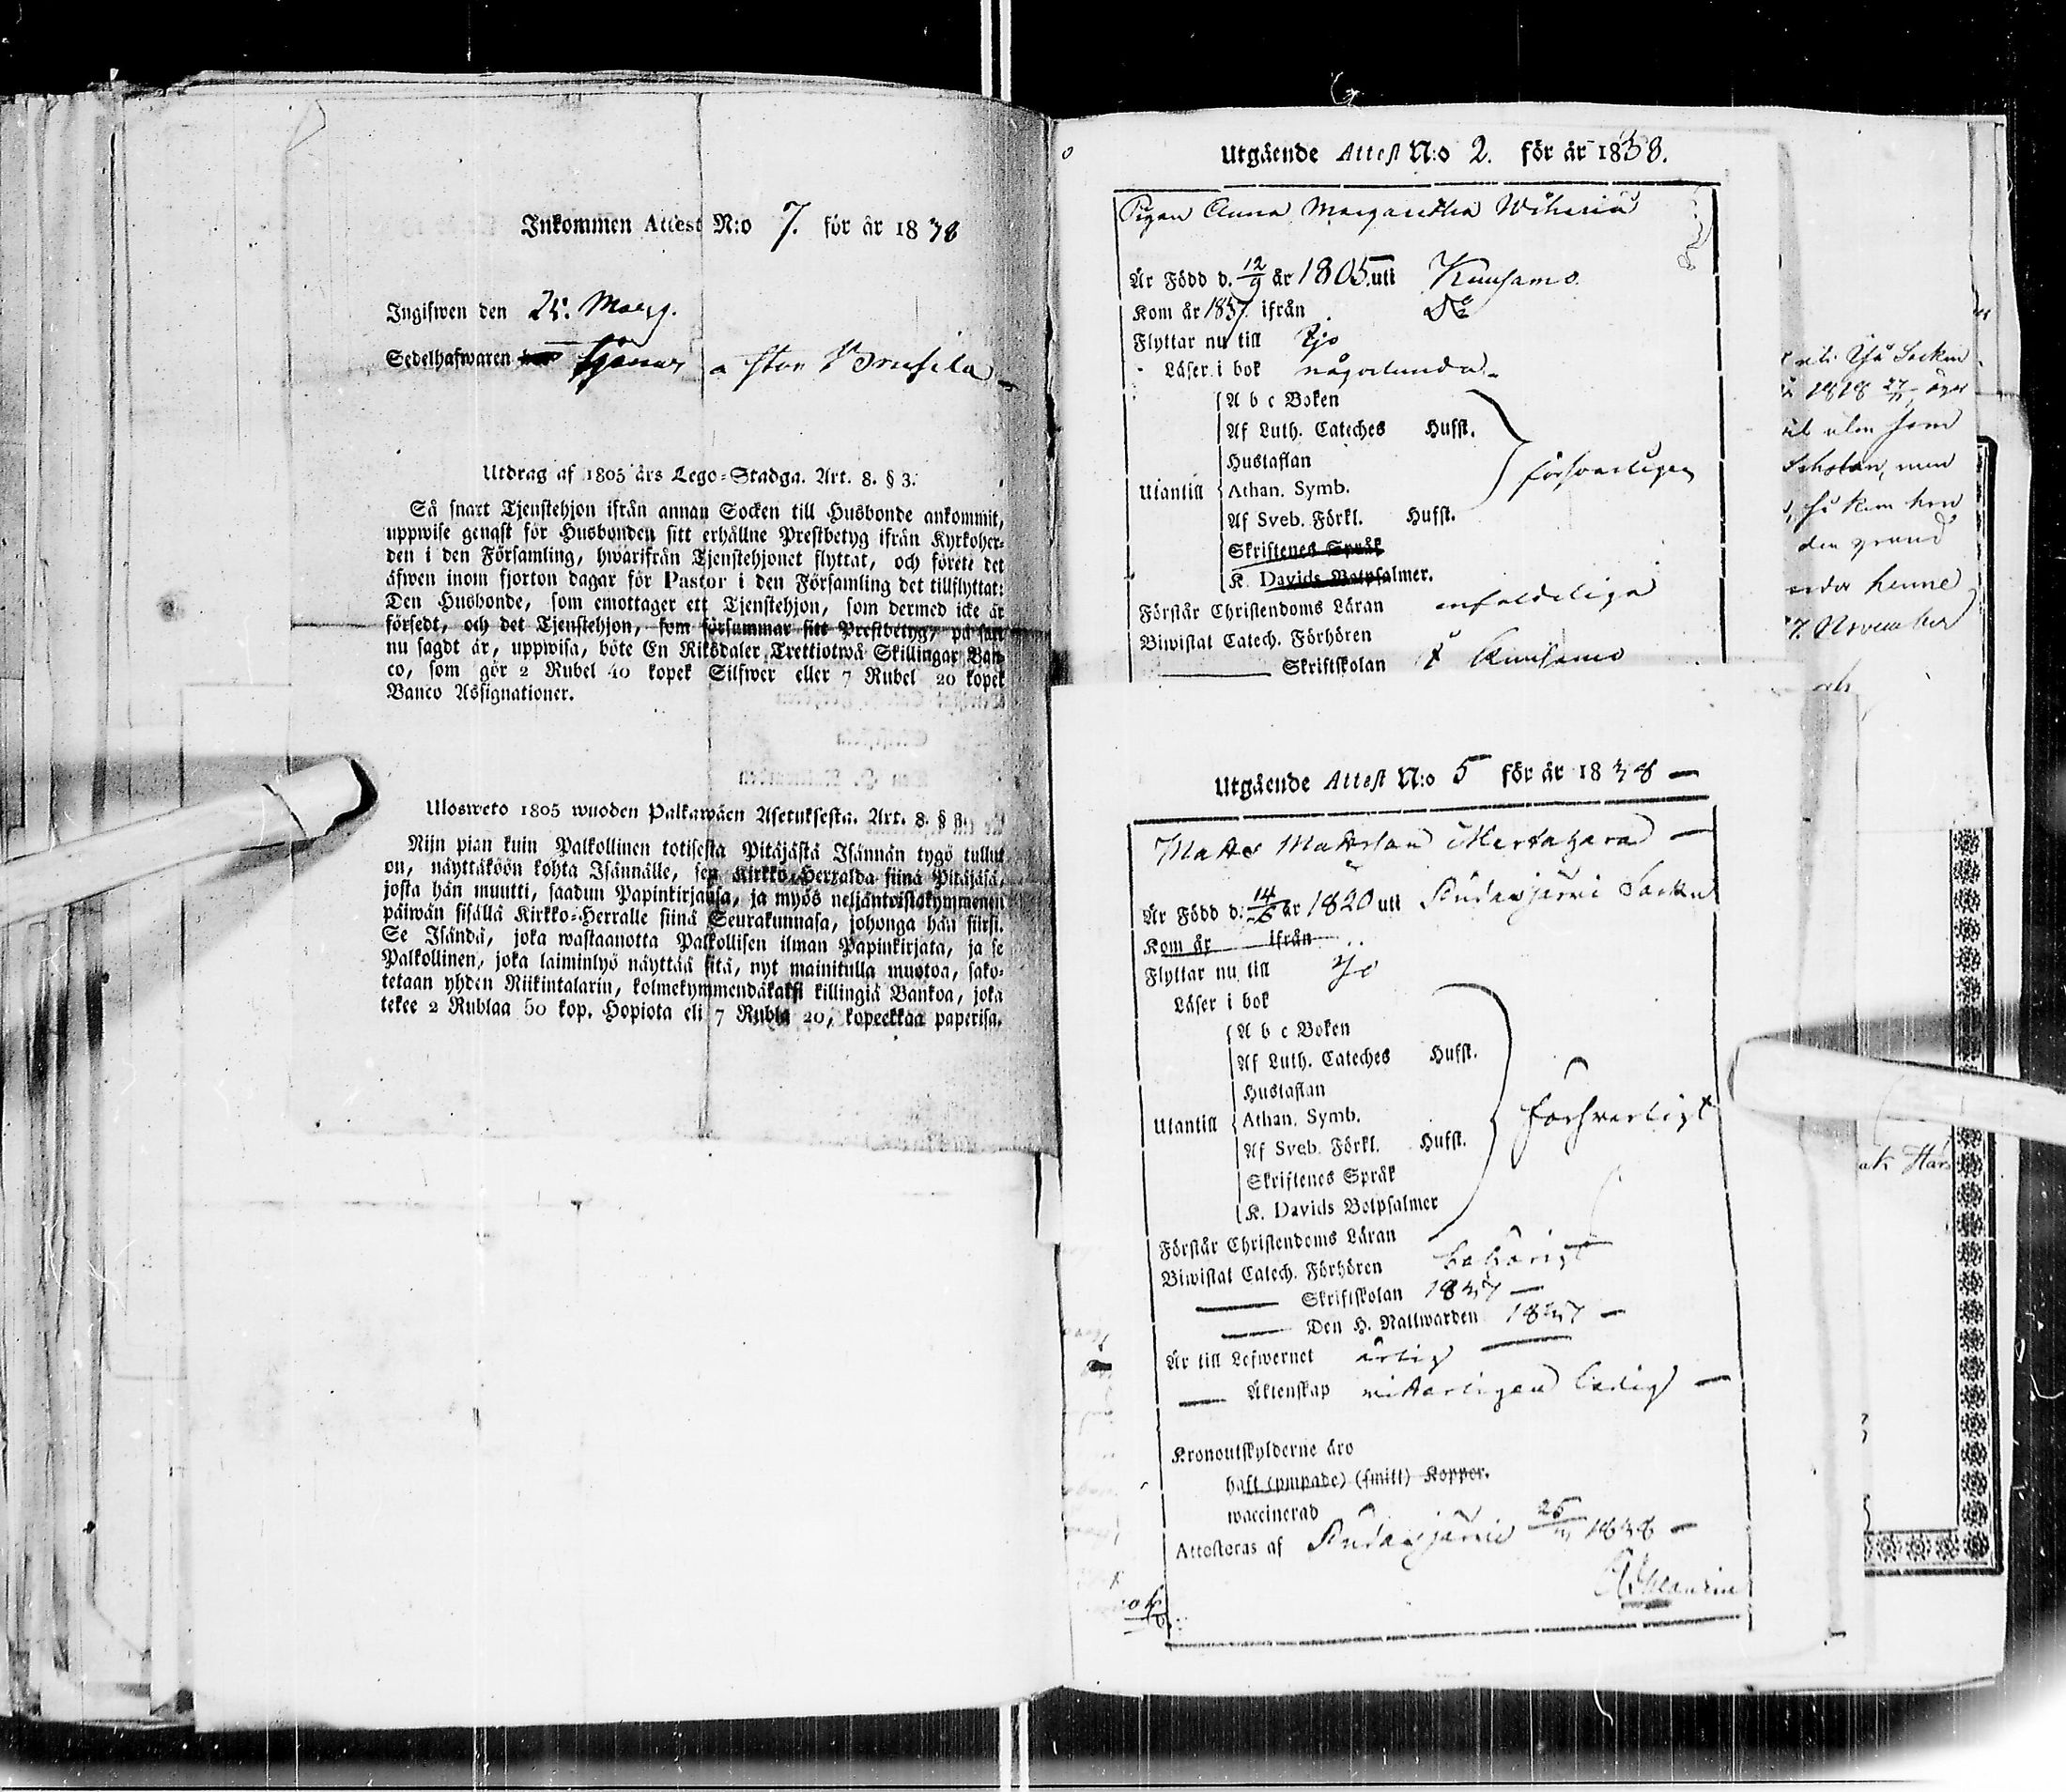 Inkommen Attest N:o 7. för år 1838
Ingifwen den 25. Marz.
Sedelhafwaren tjenar a
Utdrag af 1805 års Lego-Stadga. Art. 8. § 3.
Så snart Tjenstehjon ifrån annan Socken till Husbonde ankommit,
uppwise genast för Husbonden sitt erhållne Prestbetyg ifrån Kyrkoher-
den i den Församling, hwarifrån Tjenstehjonet flyttat, och förete det
äfwen inom fjorton dagar för Pastor i den Församling det tillflyttat:
Den Husbonde, som emottager ett Tjenstehjon, som dermed icke är
försedt, och det Tjenstehjon, som försummar sitt Prestbetyg, på sätt
nu sagdt är, uppwisa, böte En Riksdaler Trettiotwå Skillingar Ban-
co, som gör 2 Rubel 40 kopek Silfwer eller 7 Rubel 20 kopek
Banco Assignationer.
Ulosweto 1805 wuoden Palkawäen Asetuksesta. Art. 8. § 3.
Nijn pian kuin Palkollinen totisesta Pitäjästä Isännän tygö tullut
on, näyttäköön kohta Isännälle, sen Kirkko-Herralda siinä Pitäjäsä,
josta hän muutti, saadun Papinkirjansa, ja myös neljäntoistakymmenen
päiwän sisällä Kirkko-Herralle siinä Seurakunnasa, johonga hän siirsi.
Se Isändä, joka wastaanotta Palkollisen ilman Papinkirjata, ja se
Palkollinen, joka laiminlyö näyttää sitä, nyt mainitulla muotoa, sako-
tetaan yhden Riikintalarin, kolmekymmendäkaksi killingiä Bankoa, joka
tekee 2 Rublaa 50 kop. Hopiota eli 7 Rubla 20, kopeekkaa paperisa.
Utgående Attest N:o 2. för år 1838.
Pigan Anna Margaretha
Är Född d. 12/9 år 1805. uti Kuusamo.
Kom år 1837 ifrån Do
Flyttar nu till Ijo
Läser i bok någorlunda.
Utantill
A b c Boken
Af Luth. Cateches Hufst.
Hustaflan
Athan. Symb.
Af Sveb. Förkl. Hufst.
Skriftenes Språk
K. Davids Botpsalmer.
försvarligen
Förstår Christendoms Läran enfaldeliga
Biwistat Catech. Förhören
Skriftskolan i Kuusamo
Utgående Attest N:o 5 för år 1838
Matts Mattsson
Är Född d. 14/5 år 1820 uti Pudasjärvi Socken
Kom år ifrån
Flyttar nu till Ijo
Läser i bok
Utantill
A b c Boken
Af Luth. Cateches Hufst.
Hustaflan
Athan. Symb.
Af Sveb. Förkl. Hufst.
Skriftenes Språk
K. Davids Botpsalmer
försvarligt
Förstår Christendoms Läran
Biwistat Catech. Förhören behörigt
Skriftskolan 1837
Den H. Nattwarden 1837
Är till Lefwernet ärlig
Äktenskap vitterligen ledig
Kronoutskylderne äro
haft (ympade) (smitt) Koppor.
waccinerad
Attesteras af Pudasjärvi 25/3 1838
Socken
1818 27/11
som
men
kom hon
den grund
henne
7. November